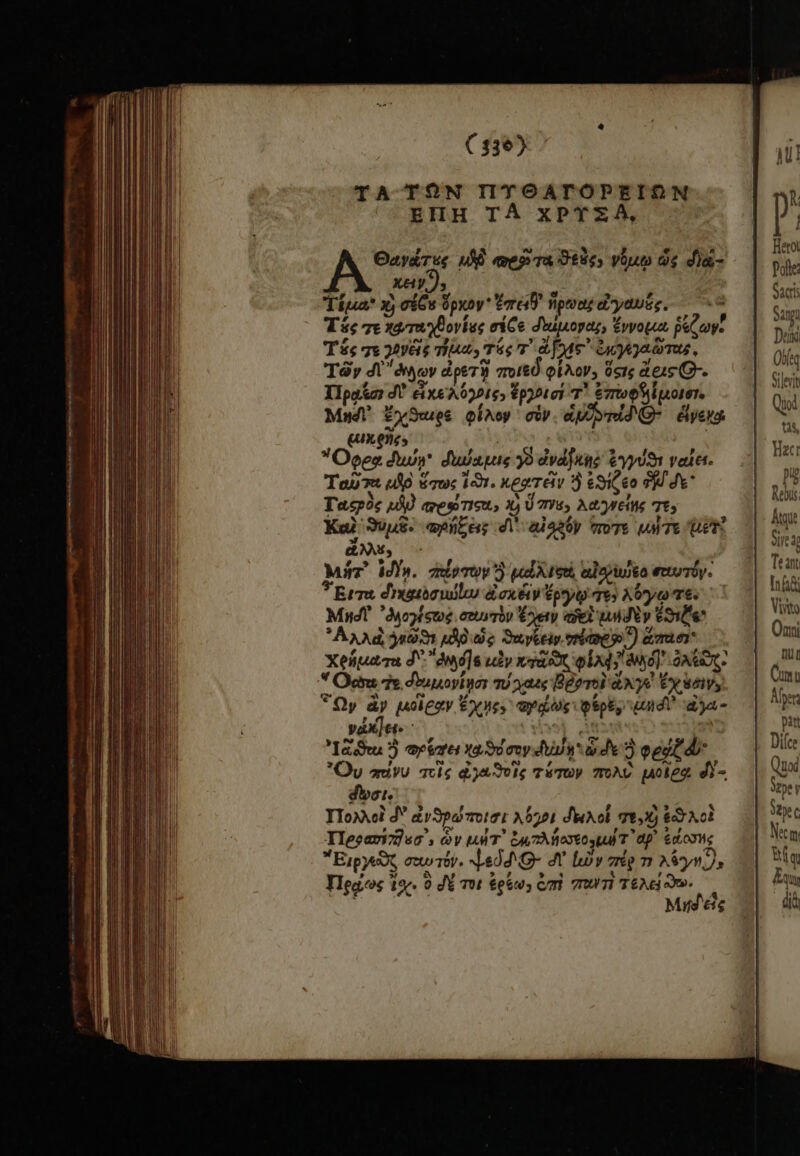 (330)
ΤΑ ΤΩΝ ΠΥΘΑΓΟΡΕΙΩΝ
ΕΠΗ ΤΑ ΧΡΥΣΑ,
ΑΘανάτους μὲν πρῶτα θεοὺς, νόμῳ ὡς διά-
κειν),
Τίμα· καὶ σέβου ὅρκον· ἔπειθ' ἥρωας ἀγαυούς.
Τούς τε καταχθονίους σέβε δαίμονας, ἔννομα ῥέζων·
Τούς τε γονεῖς τίμα, τούς τ' ἄγχιστ' ἐκγεγαῶτας.
Τῶν δ' ἄλλων ἀρετῇ ποιεῦ φίλον, ὅστις ἄριστος.
Πραέσι δ' εἶκε λόγοις, ἔργοισί τ' ἐπωφελίμοισι.
Μηδ' ἔχθαιρε φίλον σὸν ἁμαρτάδος εἵνεκα
μικρῆς,
Ὄφρα δύνῃ· δύναμις γὰρ ἀνάγκης ἐγγύθι ναίει.
Ταῦτα μὲν οὕτως ἴσθι. κρατεῖν δὲ ἐθίζεο τῶν δε·
Γαστρὸς μὲν πρώτιστα, καὶ ὕπνου, λαγνείης τε,
Καὶ θυμοῦ. πρήξεις δ' αἰσχρόν ποτε μήτε μετ'
ἄλλου,
Μήτ' ἰδίῃ. πάντων δὲ μάλιστα αἰσχύνεο σαυτόν.
Εἶτα δικαιοσύνην ἀσκεῖν ἔργῳ τε, λόγῳ τε.
Μηδ' ἀλογίστως σαυτὸν ἔχειν περὶ μηδὲν ἔθιζε·
Ἀλλὰ γνῶθι μὲν ὡς θανέειν πέπρω) ἅπασι·
Χρήματα δ' ἄλλοτε μὲν κτᾶσθαι φιλεῖ, ἄλλοτ' ὀλέσθαι.
Ὅσα τε δαιμονίησι τύχαις βροτοὶ ἄλγε' ἔχουσιν,
Ὧν ἂν μοῖραν ἔχῃς, πράως φέρε, μηδ' ἀγα-
νάκτει.
Ἰᾶσθαι δὲ πρέπει καθόσον δύνῃ· ὧδε δὲ φράζευ·
Οὐ πάνυ τοῖς ἀγαθοῖς τούτων πολὺ μοῖρα δί-
δωσι.
Πολλοὶ δ' ἀνθρώποισι λόγοι δειλοί τε, καὶ ἐσθλοὶ
Προσπίπτουσ', ὧν μήτ' ἐκπλήσσεο, μήτ' ἄρ' ἐάσῃς
Εἴργεσθαι σαυτόν. ψεῦδος δ' ἤν πέρ τι λέγη),
Πράως ἴσχ'. ὃ δέ τοι ἐρέω, ἐπὶ παντὶ τελείσθω.
Μηδεὶς